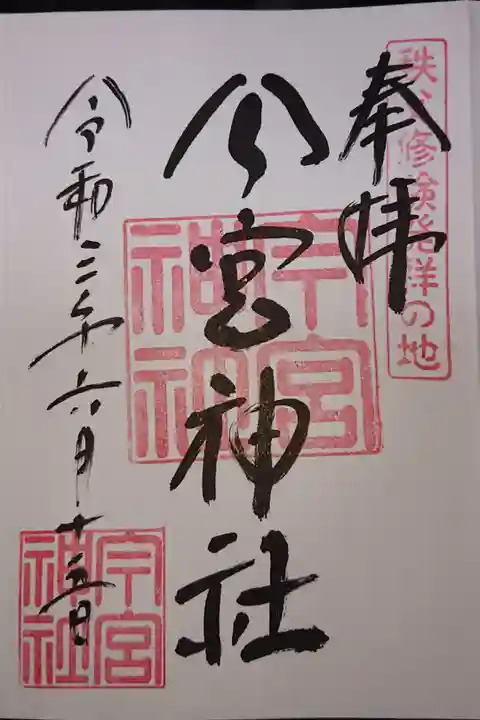 秩父修験発祥の地
奉拝
今宮神社
今宮
神社
令和二年六月十三日
今宮
神社